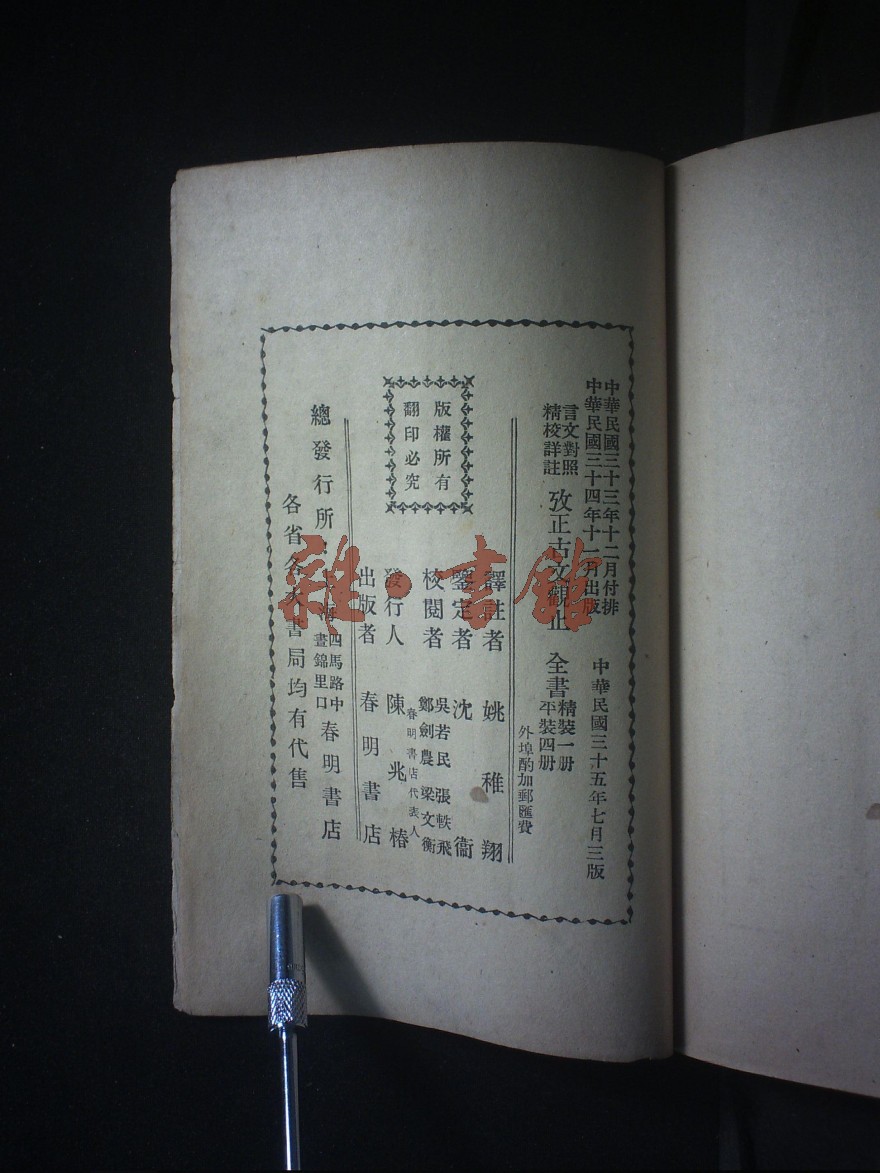 中華民國三十三年十二月付排
中華民國三十四年十一月出版
中華民國三十五年七月三版
言文對照
精校詳註
攷正古文觀止
全書
精裝一册
平裝四册
外埠酌加郵匯費
譯註者 姚稚翔
鑒定者 沈衞
校閱者 吳若民 張軼飛
鄭劍農 梁文衡
發行人 春明書店代表人
陳兆椿
出版者 春明書店
版權所有
翻印必究
總發行所
上海四馬路中
晝錦里口
春明書店
各省各大書局均有代售
雜·書館